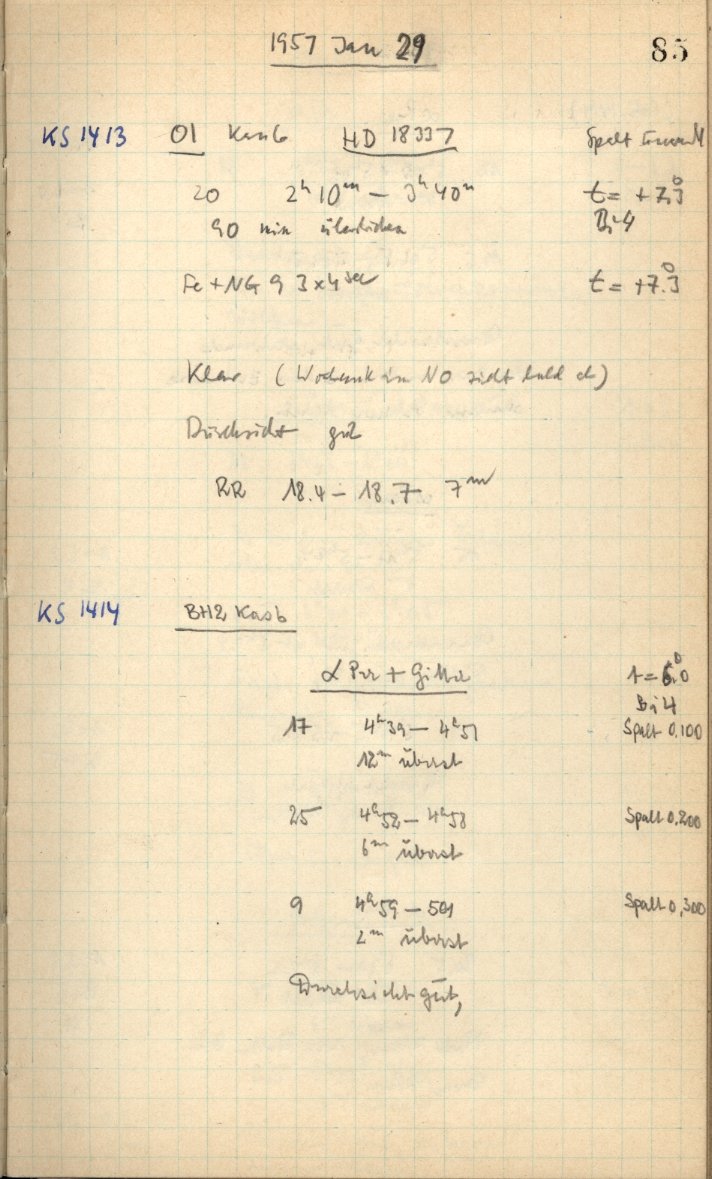 1957 Jan 29
85
KS 1413 O1 Kas6 HD 18337 Spalt
20 2h 10m – 3h 40m t = +7.3°
90 min Bi 4
Fe + NG 9 3x4 sec t = +7.3°
Klar ( im NO zieht bald ab)
Durchsicht gut
RR 18.4 – 18.7 7m
KS 1414 BH2 Kas6
α Per + Gitter t = 6.0°
Bi 4
17 4h39 – 4h51 Spalt 0.100
12m überst
25 4h52 – 4h58 Spalt 0.200
6m überst
9 4h59 – 501 Spalt 0,300
2m überst
Durchsicht gut,